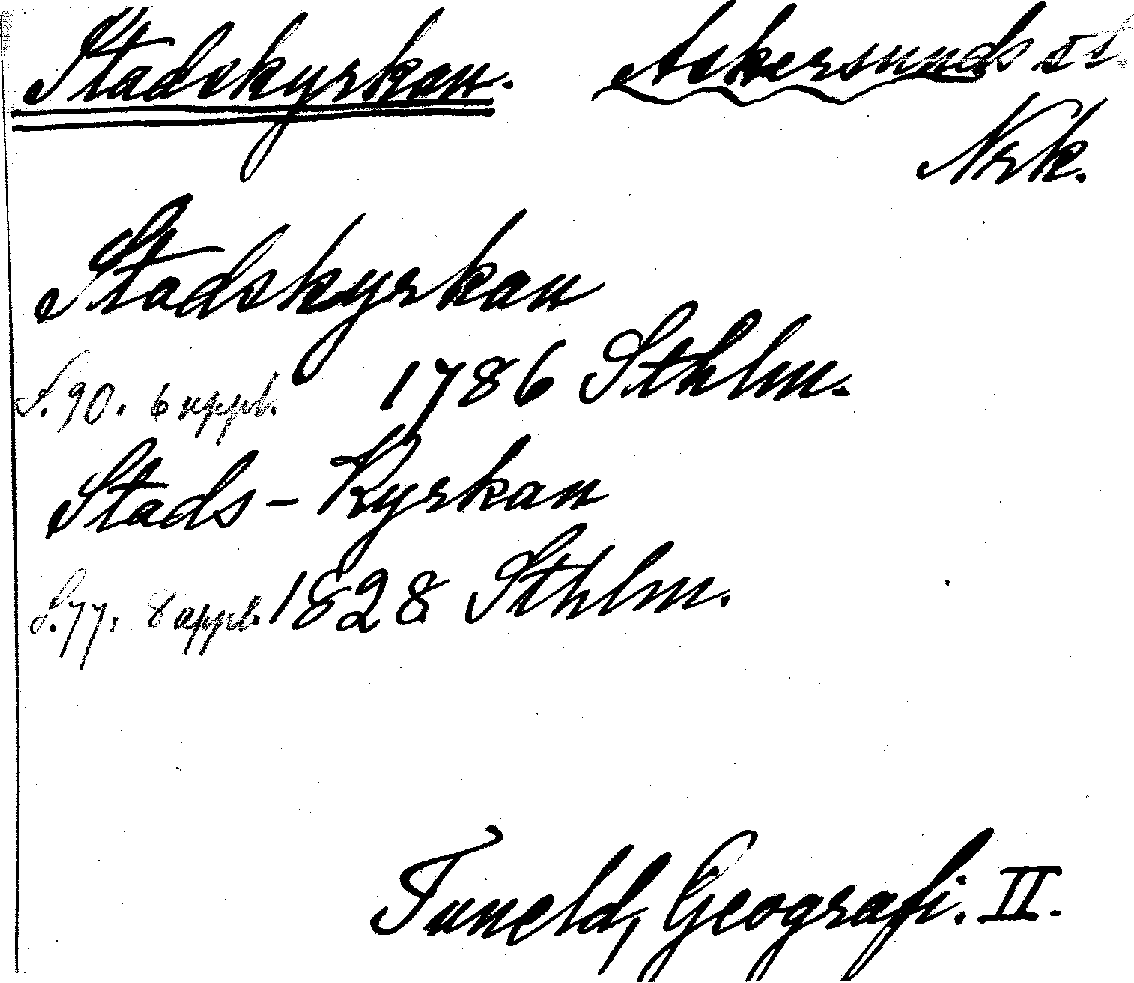 Stadskyrkan. Askersunds st.
Nrk.
Stadskyrkan
S.90. 6 uppl. 1786 Sthlm.
Stads-Kyrkan
S.77. 8 uppl. 1828 Sthlm.
Tuneld, Geografi. II.